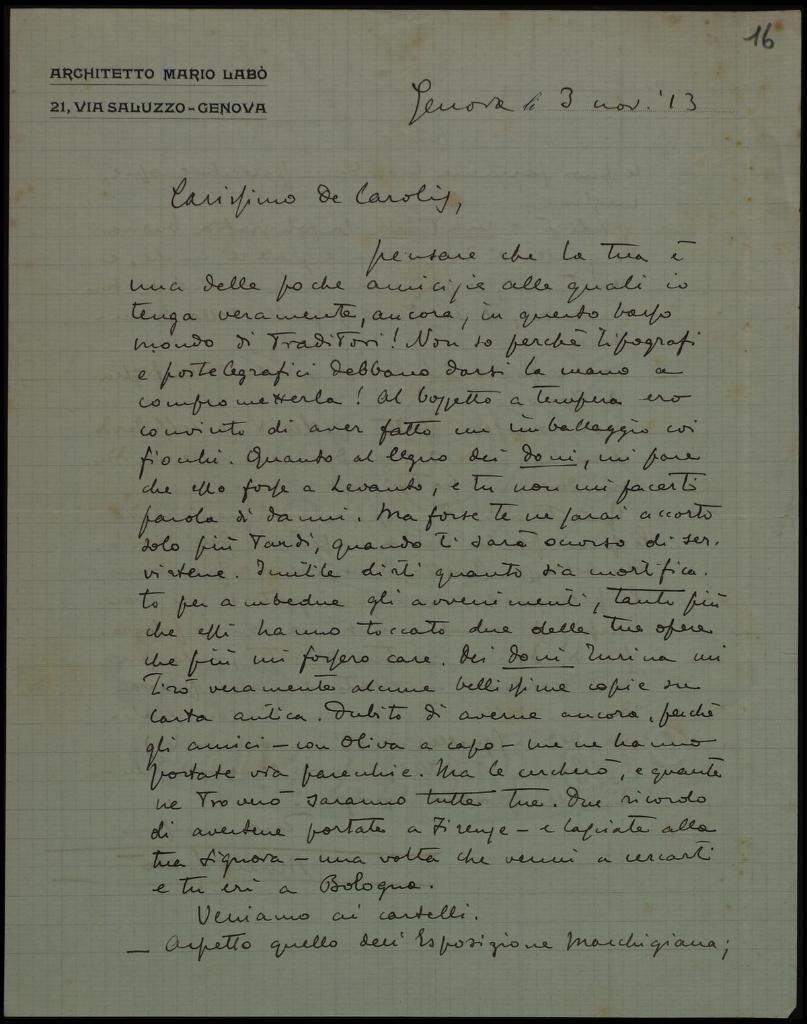 16
ARCHITETTO MARIO LABÒ
21, VIA SALUZZO - GENOVA
Genova li 3 nov. '13
Carissimo De Carolis,
pensare che la tua è
una delle poche amicizie alle quali io
tenga veramente, ancora, in questo basso
mondo di Traditori! Non so perchè tipografi
e postelegrafici debbano darsi la mano a
comprometterla! Al bozzetto a tempera ero
convinto di aver fatto un imballaggio coi
fiocchi. Quanto al legno dei doni, mi pare
che esso fosse a Levanto, e tu non mi facesti
parola di danni. Ma forse te ne sarai accorto
solo più tardi, quando ti sarà occorso di ser-
virtene. Inutile dirti quanto sia mortifica-
to per ambedue gli avvenimenti, tanto più
che essi hanno toccato due delle tue opere
che più mi fossero care. Dei doni mi
tirò veramente alcune bellissime copie su
carta antica. Dubito di averne ancora, perchè
gli amici - con Oliva a capo - me ne hanno
portate via parecchie. Ma le cercherò, e quante
ne troverò saranno tutte tue. Due ricordo
di avertene portate a Firenze - e lasciate alla
tua Signora - una volta che venni a cercarti
e tu eri a Bologna.
Veniamo ai cartelli.
- Aspetto quello dell'Esposizione Marchigiana;